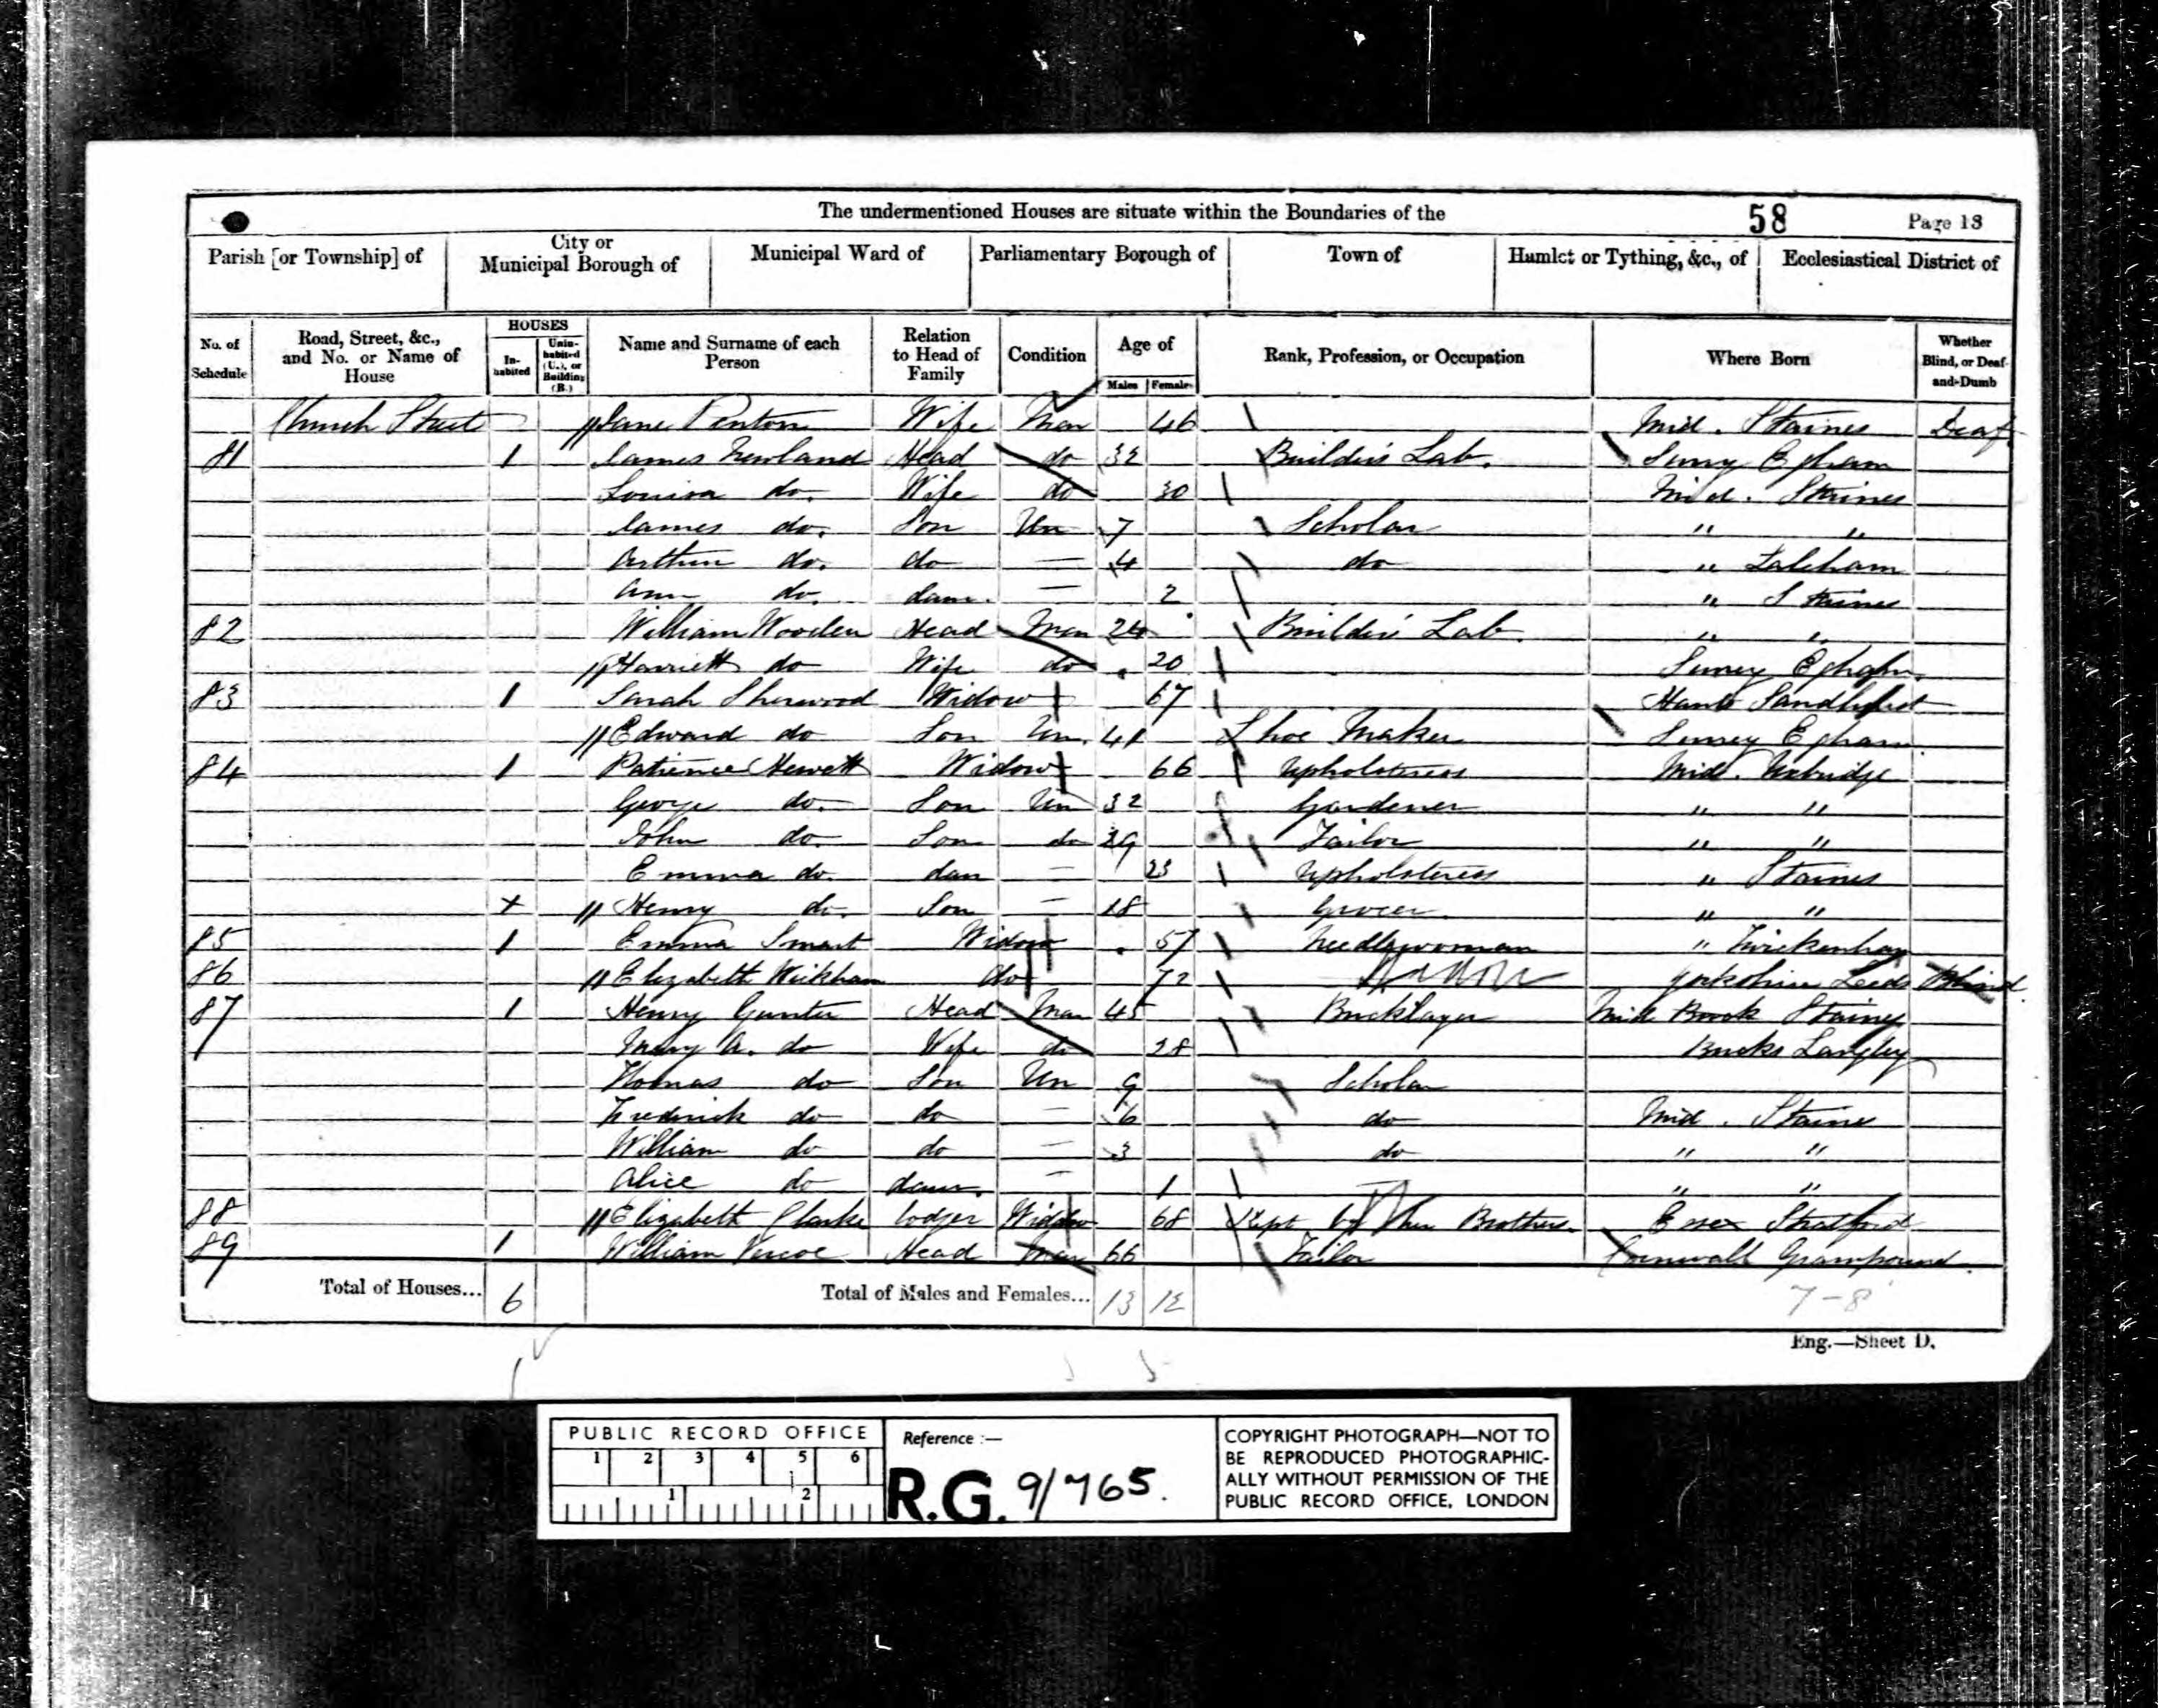 The undermentioned Houses are situate within the Boundaries of the 58 Page 13
Parish [or Township] of City or Municipal Borough of Municipal Ward of Parliamentary Borough of Town of Hamlet or Tything, &c., of Ecclesiastical District of
No. of Schedule Road, Street, &c., and No. or Name of House HOUSES Inhabited Uninhabited (U.), or Building (B.) Name and Surname of each Person Relation to Head of Family Condition Age of Males Females Rank, Profession, or Occupation Where Born Whether Blind, or Deaf-and-Dumb
Church Street // Jane Penton Wife Mar 46 Mid. Staines Deaf
81 1 James Newland Head do 32 Builder's Lab. Surry Egham
Louisa do. Wife do 30 Mid. Staines
James do. Son Un 7 Scholar " "
Arthur do. do — 4 do " Laleham
Ann do. daur. — 2 " Staines
82 William Wooden Head Mar 24 Builder's Lab. " "
// Harriett do Wife do 20 Surrey Egham.
83 1 Sarah Sherwood Widow 67 Hants Sandhurst
// Edward do Son Un. 41 Shoe Maker Surrey Egham.
84 1 Patience Hewett Widow 66 Upholsteress Mid. Uxbridge
George do. Son Un 32 Gardener " "
John do. Son do 29 Tailor " "
Emma do. dau — 23 Upholsteress " Staines
x // Henry do. Son — 18 Grocer. " "
85 1 Emma Smart Widow 57 Needlewoman " Twickenham
86 // Elizabeth Wickham do 72 Yorkshire Leeds Blind.
87 1 Henry Gunter Head Mar 45 Bricklayer Mid Staines
Mary A. do Wife do 28 Bucks Langley
Thomas do Son Un 9 Scholar
Frederick do do — 6 do Mid. Staines
William do do — 3 do " "
Alice do daur. — 1 " "
88 // Elizabeth Clarke lodger Widow 68 Kept by her Brothers. Essex Stratford
89 1 William Vercoe Head Mar 66 Tailor Cornwall Grampound.
Total of Houses... 6 Total of Males and Females... 13 12 7-8
Eng.—Sheet D.
PUBLIC RECORD OFFICE
1 2 3 4 5 6
1 2
Reference :—
R.G. 9/765.
COPYRIGHT PHOTOGRAPH—NOT TO
BE REPRODUCED PHOTOGRAPHIC-
ALLY WITHOUT PERMISSION OF THE
PUBLIC RECORD OFFICE, LONDON